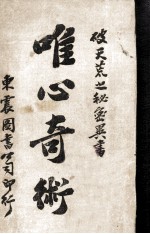 破天荒之秘密異書
唯心奇術
東震图書公司印行